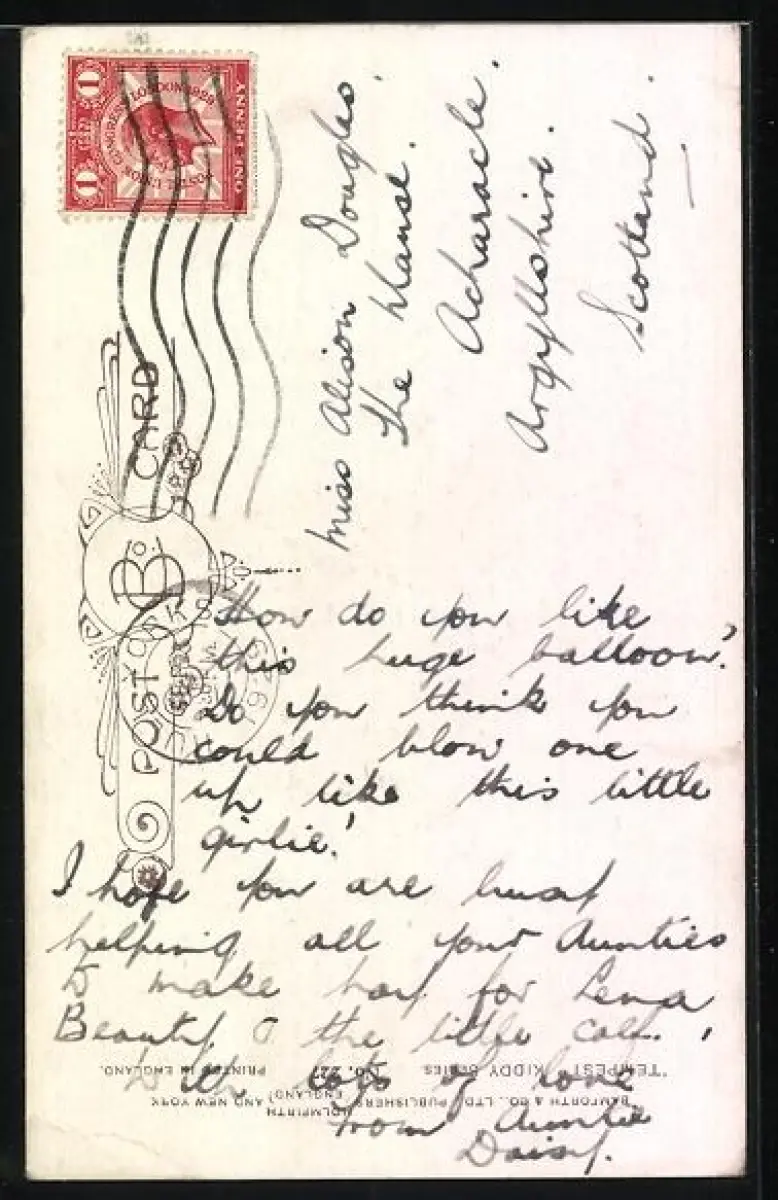 POSTAL UNION CONGRESS LONDON 1929
1 1
ONE PENNY
POST CARD
B & Co.
Miss Alison Douglas.
The Manse.
Acharacle.
Argyllshire.
Scotland.
How do you like
this huge balloon?
Do you think you
could blow one
up like this little
girlie!
I hope you are busy
helping all your Aunties
to make hay for Lena
Beauty & the little calf.
With lots of love
from Auntie
Daisy.
"TEMPEST" KIDDY SERIES NO. PRINTED IN ENGLAND.
BAMFORTH & CO., LTD., PUBLISHERS, HOLMFIRTH (ENGLAND) AND NEW YORK